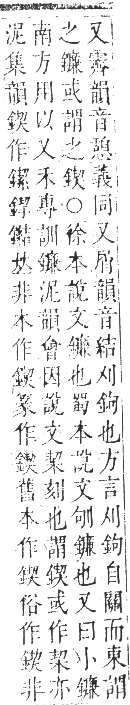 又霽韻音憩義同又屑韻音結刈鉤也方言刈鉤自關而東謂
之鐮或謂之鍥○徐本說文鐮也蜀本說文刎鐮也又曰小鐮
南方用以又禾專訓鐮泥韻會因說文栔刻也謂鍥或作栔亦
泥集韻鍥作鏍鍔鐑𠀤非本作鍥篆作鍥舊本作鍥俗作鍥非